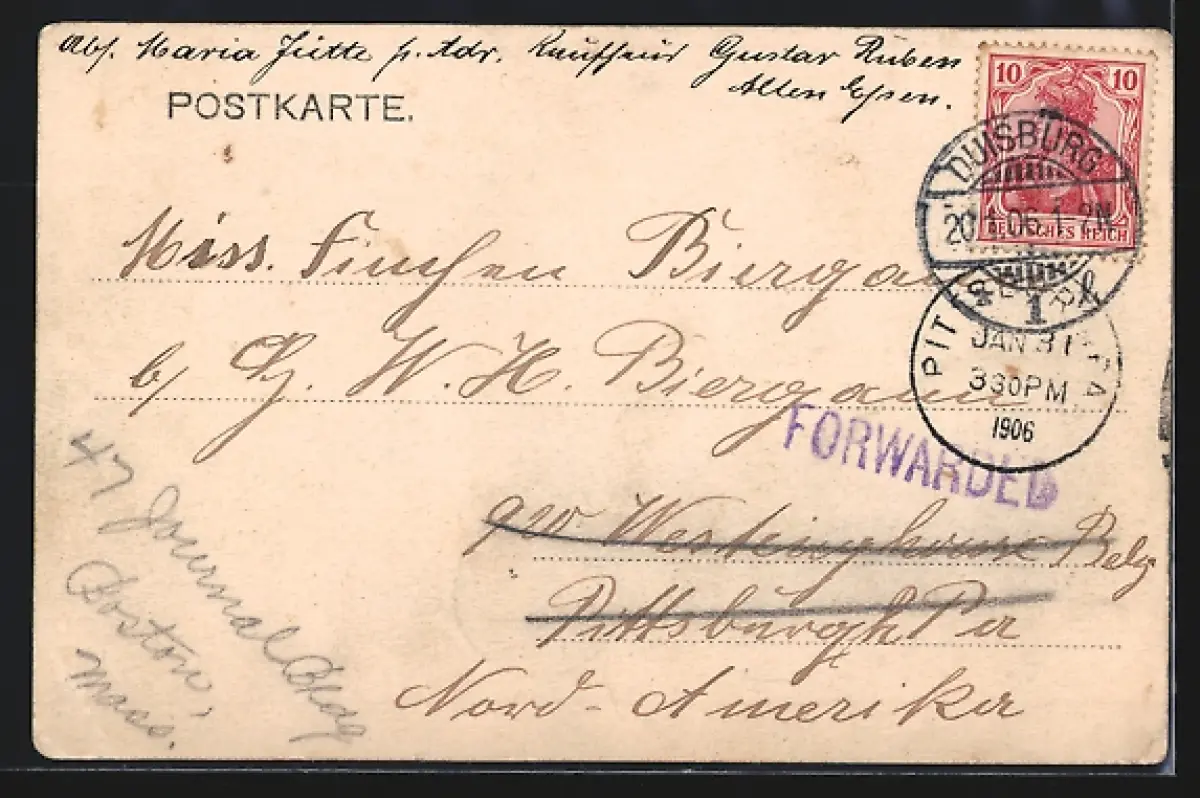 Abs. Maria Jütte p. Adr. Kauffrau Gustav Ruben
Alten Essen.
POSTKARTE.
10 10
DEUTSCHES REICH
DUISBURG
20.1.06.1-2N.
1
PITTSBURG, PA
JAN 31
330PM
1906
Miss. Finchen Biergans
W. H. Biergans
FORWARDED
Westinghouse Belg
Pittsburgh Pa
Nord-Amerika
47 Journal Bldg
Boston,
Mass.